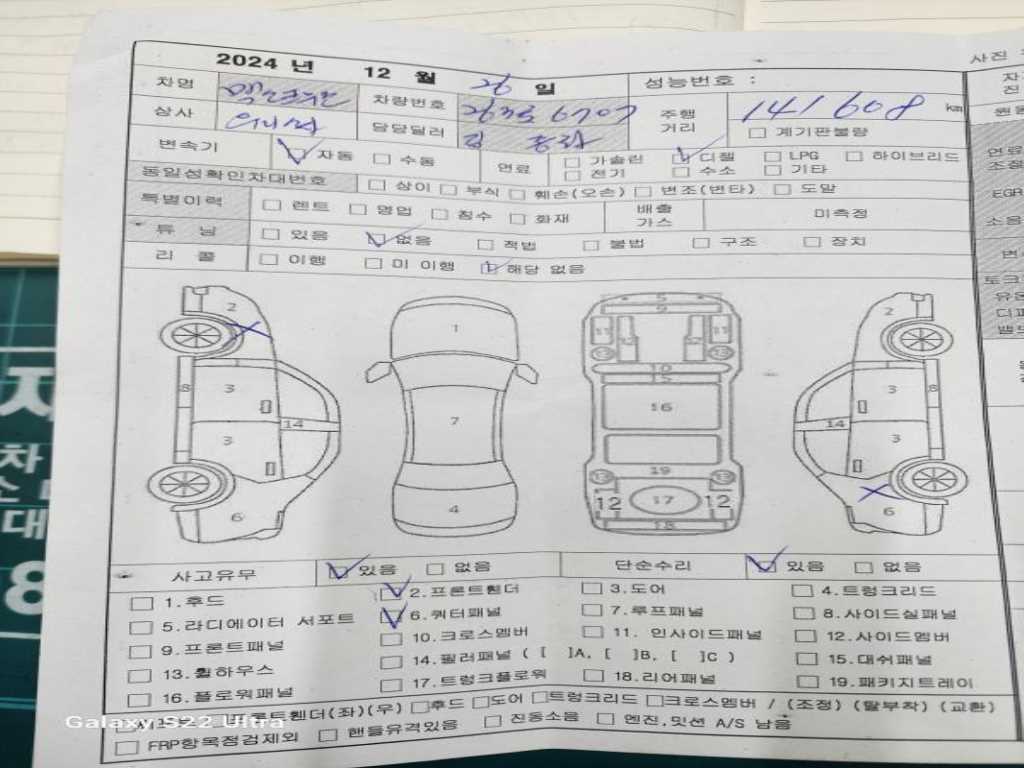 2024 년 12 월 26 일 성능번호 :
사진
차명 차량번호 주행 거리 141608 km
상사 담당딜러 김 계기판불량
변속기 자동 수동 연료 가솔린 디젤 LPG 하이브리드
전기 수소 기타
동일성확인차대번호 상이 부식 훼손(오손) 변조(변타) 도말
특별이력 렌트 영업 침수 화재 배출 가스 미측정
튜 닝 있음 없음 적법 불법 구조 장치
리 콜 이행 미 이행 해당 없음
자
진
원동
연료
조정
EGR
소음
변
토크
유온
디퍼
밸브
2 1 5 9 2
11 12 12 11
13 13
10
15
8 3 7 16 3 8
14 14
3 3
19
13 13
6 4 12 17 12 6
18
사고유무 있음 없음 단순수리 있음 없음
1.후드 2.프론트휀더 3.도어 4.트렁크리드
5.라디에이터 서포트 6.쿼터패널 7.루프패널 8.사이드실패널
9.프론트패널 10.크로스멤버 11. 인사이드패널 12.사이드멤버
13.휠하우스 14.필러패널 ( [ ]A, [ ]B, [ ]C ) 15.대쉬패널
16.플로워패널 17.트렁크플로워 18.리어패널 19.패키지트레이
휀더(좌)(우) 후드 도어 트렁크리드 크로스멤버 / (조정) (탈부착) (교환)
FRP항목점검제외 핸들유격있음 진동소음 엔진,밋션 A/S 남음
Galaxy S22 Ultra
차
대
8